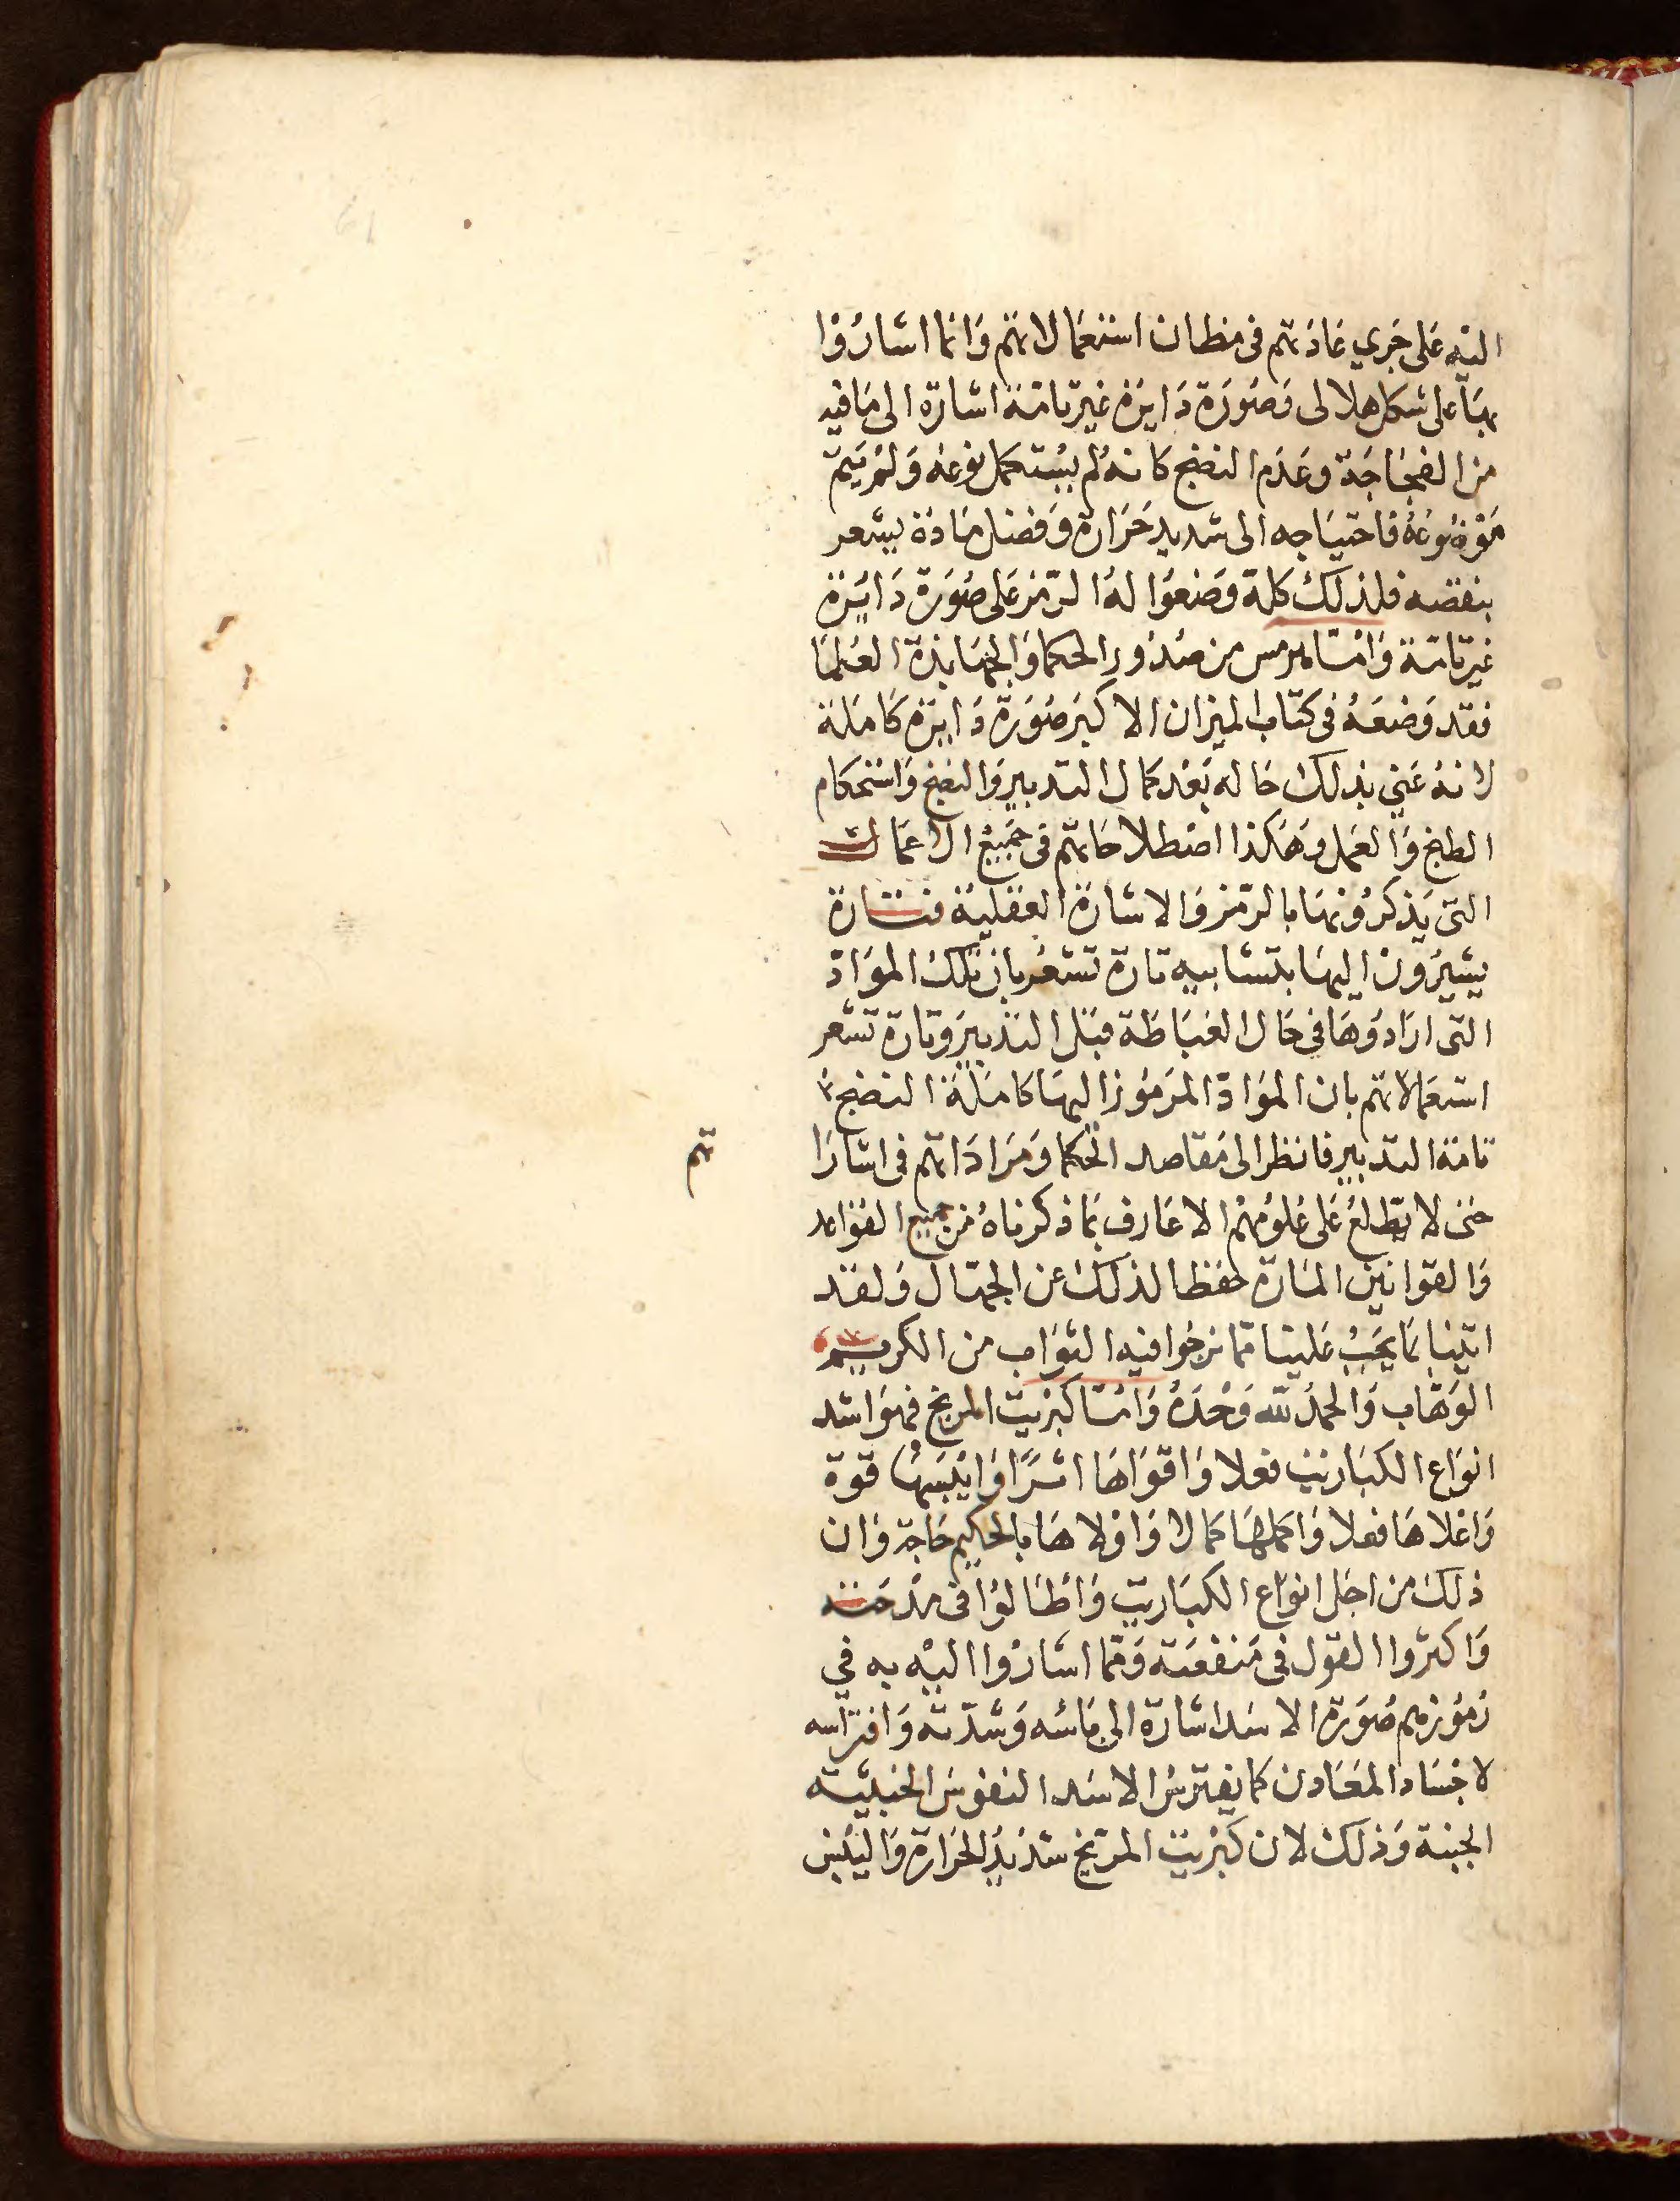 اليه على جري عادتهم في مظان استعمالاتهم وانما اشاروا
بها على شكل هلالى وصورة دايرة غير تامة اشارة الى ما فيه
من الفجاجة وعدم النضج كانه لم يستكمل نوعه ولم يتم
نوعه فاحتياجه الى شديد حرارة وفضل مادة يشعر
بنقصه فلذلك كله وضعوا له الرمز على صورة دايرة
غير تامة واما هرمس من صدور الحكما والجهابذة العلما
فقد وضعه في كتاب الميزان الاكبر صورة دايرة كاملة
لانه عني بذلك حاله بعد كمال التدبير والنضج واستحكام
الطبخ والعمل وهكذا اصطلاحاتهم في جميع الاعمال
التي يذكرونها بالرمز والاشارة العقلية فتارة
يشيرون اليها بتشابيه تارة تشعر بان تلك المواد
التى ارادوها في حال الغباطة قبل التدبير وتارة تشعر
استعمالاتهم بان المواد المرموز اليها كاملة النضج
تامة التدبير فانظر الى مقاصد الحكما ومراداتهم في اشارا
تهم
حتى لا يطلع على علومهم الا عارف بما ذكرناه من جميع القواعد
والقوانين المارة حفظا لذلك عن الجهال ولقد
اتينا بما يجب علينا مما نرجوا فيه الثواب من الكريم
الوهاب والحمد لله وحده واما كبريت المريخ فهو اشد
انواع الكباريت فعلا واقواها اثرا وايبسها قوة
واغلاها فعلا واكملها كمالا واولاها بالحكيم حاجة وان
ذلك من اجل انواع الكباريت واطالوا في مدحته
واكثروا القول في منفعته ومما اشاروا اليه به في
رموزهم صورة الاسد اشارة الى باسه وشدته وافتراسه
لاجساد المعادن كما يفترس الاسد النفوس
وذلك لان كبريت المريخ شديد الحرارة واليبس